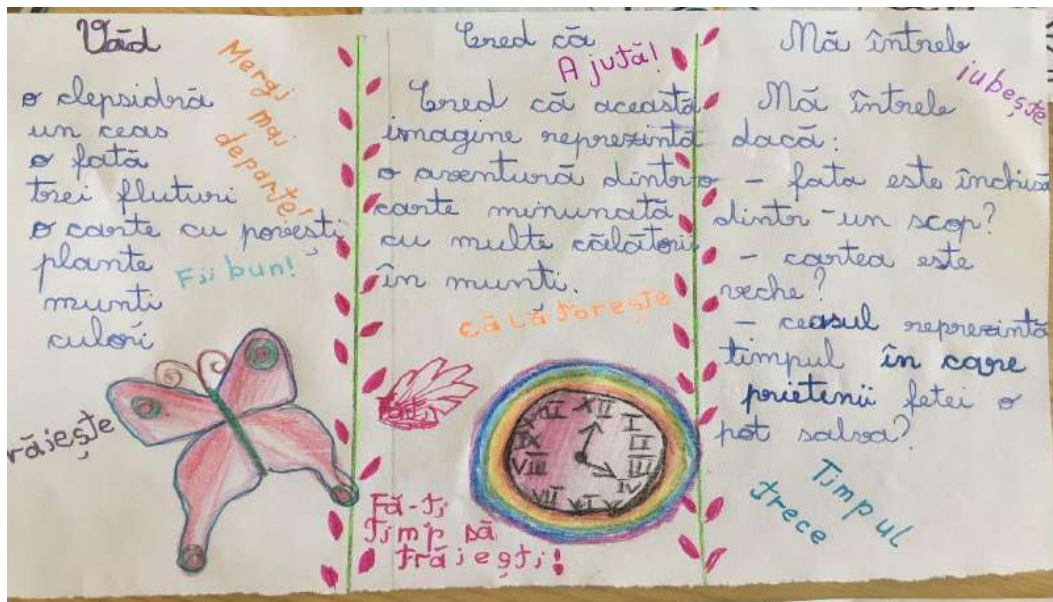 Văd
Mergi
mai
departe!
o clepsidră
un ceas
o fată
trei fluturi
o carte cu povești
plante
munti
culori
Fii bun!
răiește
Cred că
Ajută!
Cred că această
imagine reprezintă
o aventură dintr-o
carte minunată
cu multe călătorii
în munti.
Călătorește
XII
I
II
III
IV
VI
VII
VIII
IX
XI
Fă-ți
timp să
trăiești!
Mă întreb
iubește
Mă întreb
dacă:
- fata este închisă
dintr-un scop?
- cartea este
veche?
- ceasul reprezintă
timpul în care
prietenii fetei o
pot salva?
Timpul
trece